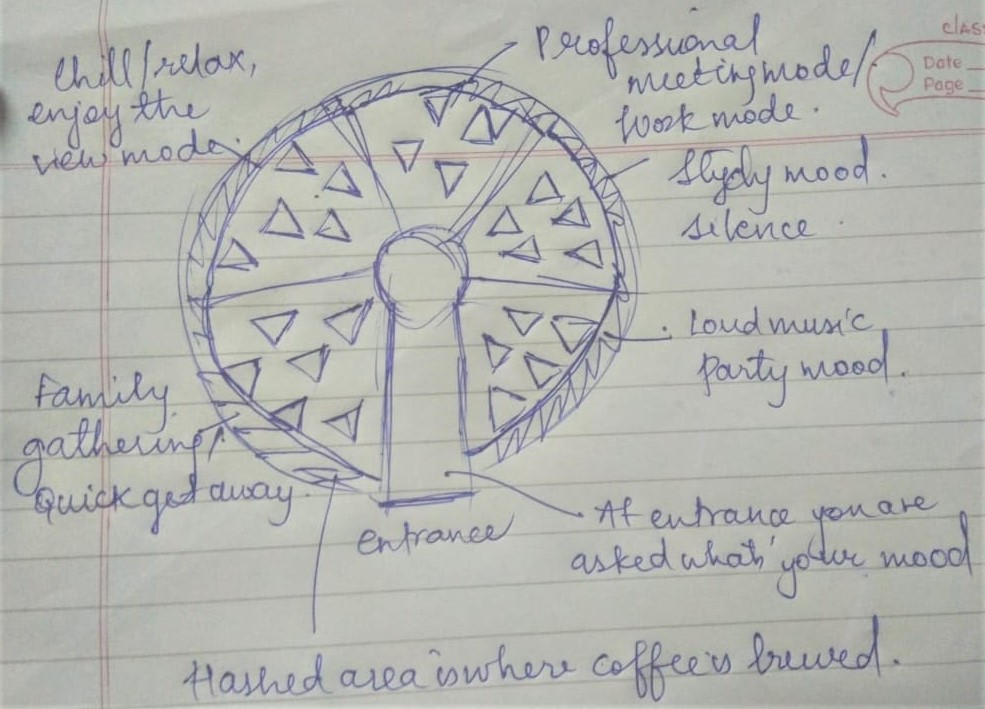 Chill/relax,
enjoy the
view mode.
Professional
meeting mode/
work mode.
Class
Date
Page
Study mood.
silence.
Loud music
party mood.
Family
gathering/
Quick get away.
entrance
At entrance you are
asked what's your mood
Hashed area is where coffee is brewed.